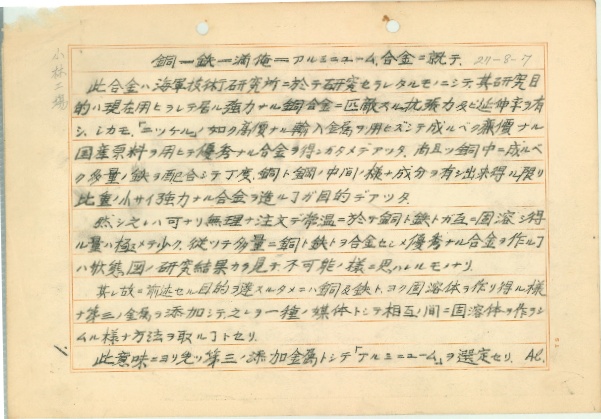 小林工場
銅一鉄一満俺一アルミニューム合金ニ就テ. 27-8-7
此合金ハ海軍技術研究所ニ於テ研究セラレタルモノニシテ、其研究目
的ハ現在用ヒラレテ居ル強力ナル銅合金ニ匹敵スル抗張力及ビ延伸率ヲ有
シ、シカモ、「ニッケル」ノ如ク高價ナル輸入金属ヲ用ヒズシテ成ルベク廉價ナル
国産原料ヲ用ヒテ優秀ナル合金ヲ得ンガタメデアツタ. 尚且ツ銅中ニ成ルベ
ク多量ノ鉄ヲ配合シテ丁度、銅ト鋼ノ中間ノ様ナ成分ヲ有シ出来得ル限リ
比重ノ小サイ強力ナル合金ヲ造ルヿガ目的デアツタ.
然シ之レハ可ナリ無理ナ注文デ常温ニ於テ銅ト鉄トガ互ニ固溶シ得
ル量ハ極メテ少ク. 従ツテ多量ニ銅ト鉄トヲ合金セシメ優秀ナル合金ヲ作ルヿ
ハ状態図ノ研究結果カラ見テ不可能ノ様ニ思ハレルモノナリ.
其レ故ニ前述セル目的ヲ達スルタメニハ銅及鉄トヨク固溶体ヲ作リ得ル様
ナ第三ノ金属ヲ添加シテ、之レヲ一種ノ媒体トシテ相互ノ間ニ固溶体ヲ作ラシ
ムル様ナ方法ヲ取ルヿトセリ.
1.
此意味ニヨリ先ツ第三ノ添加金属トシテ「アルミニューム」ヲ選定セリ. Al.